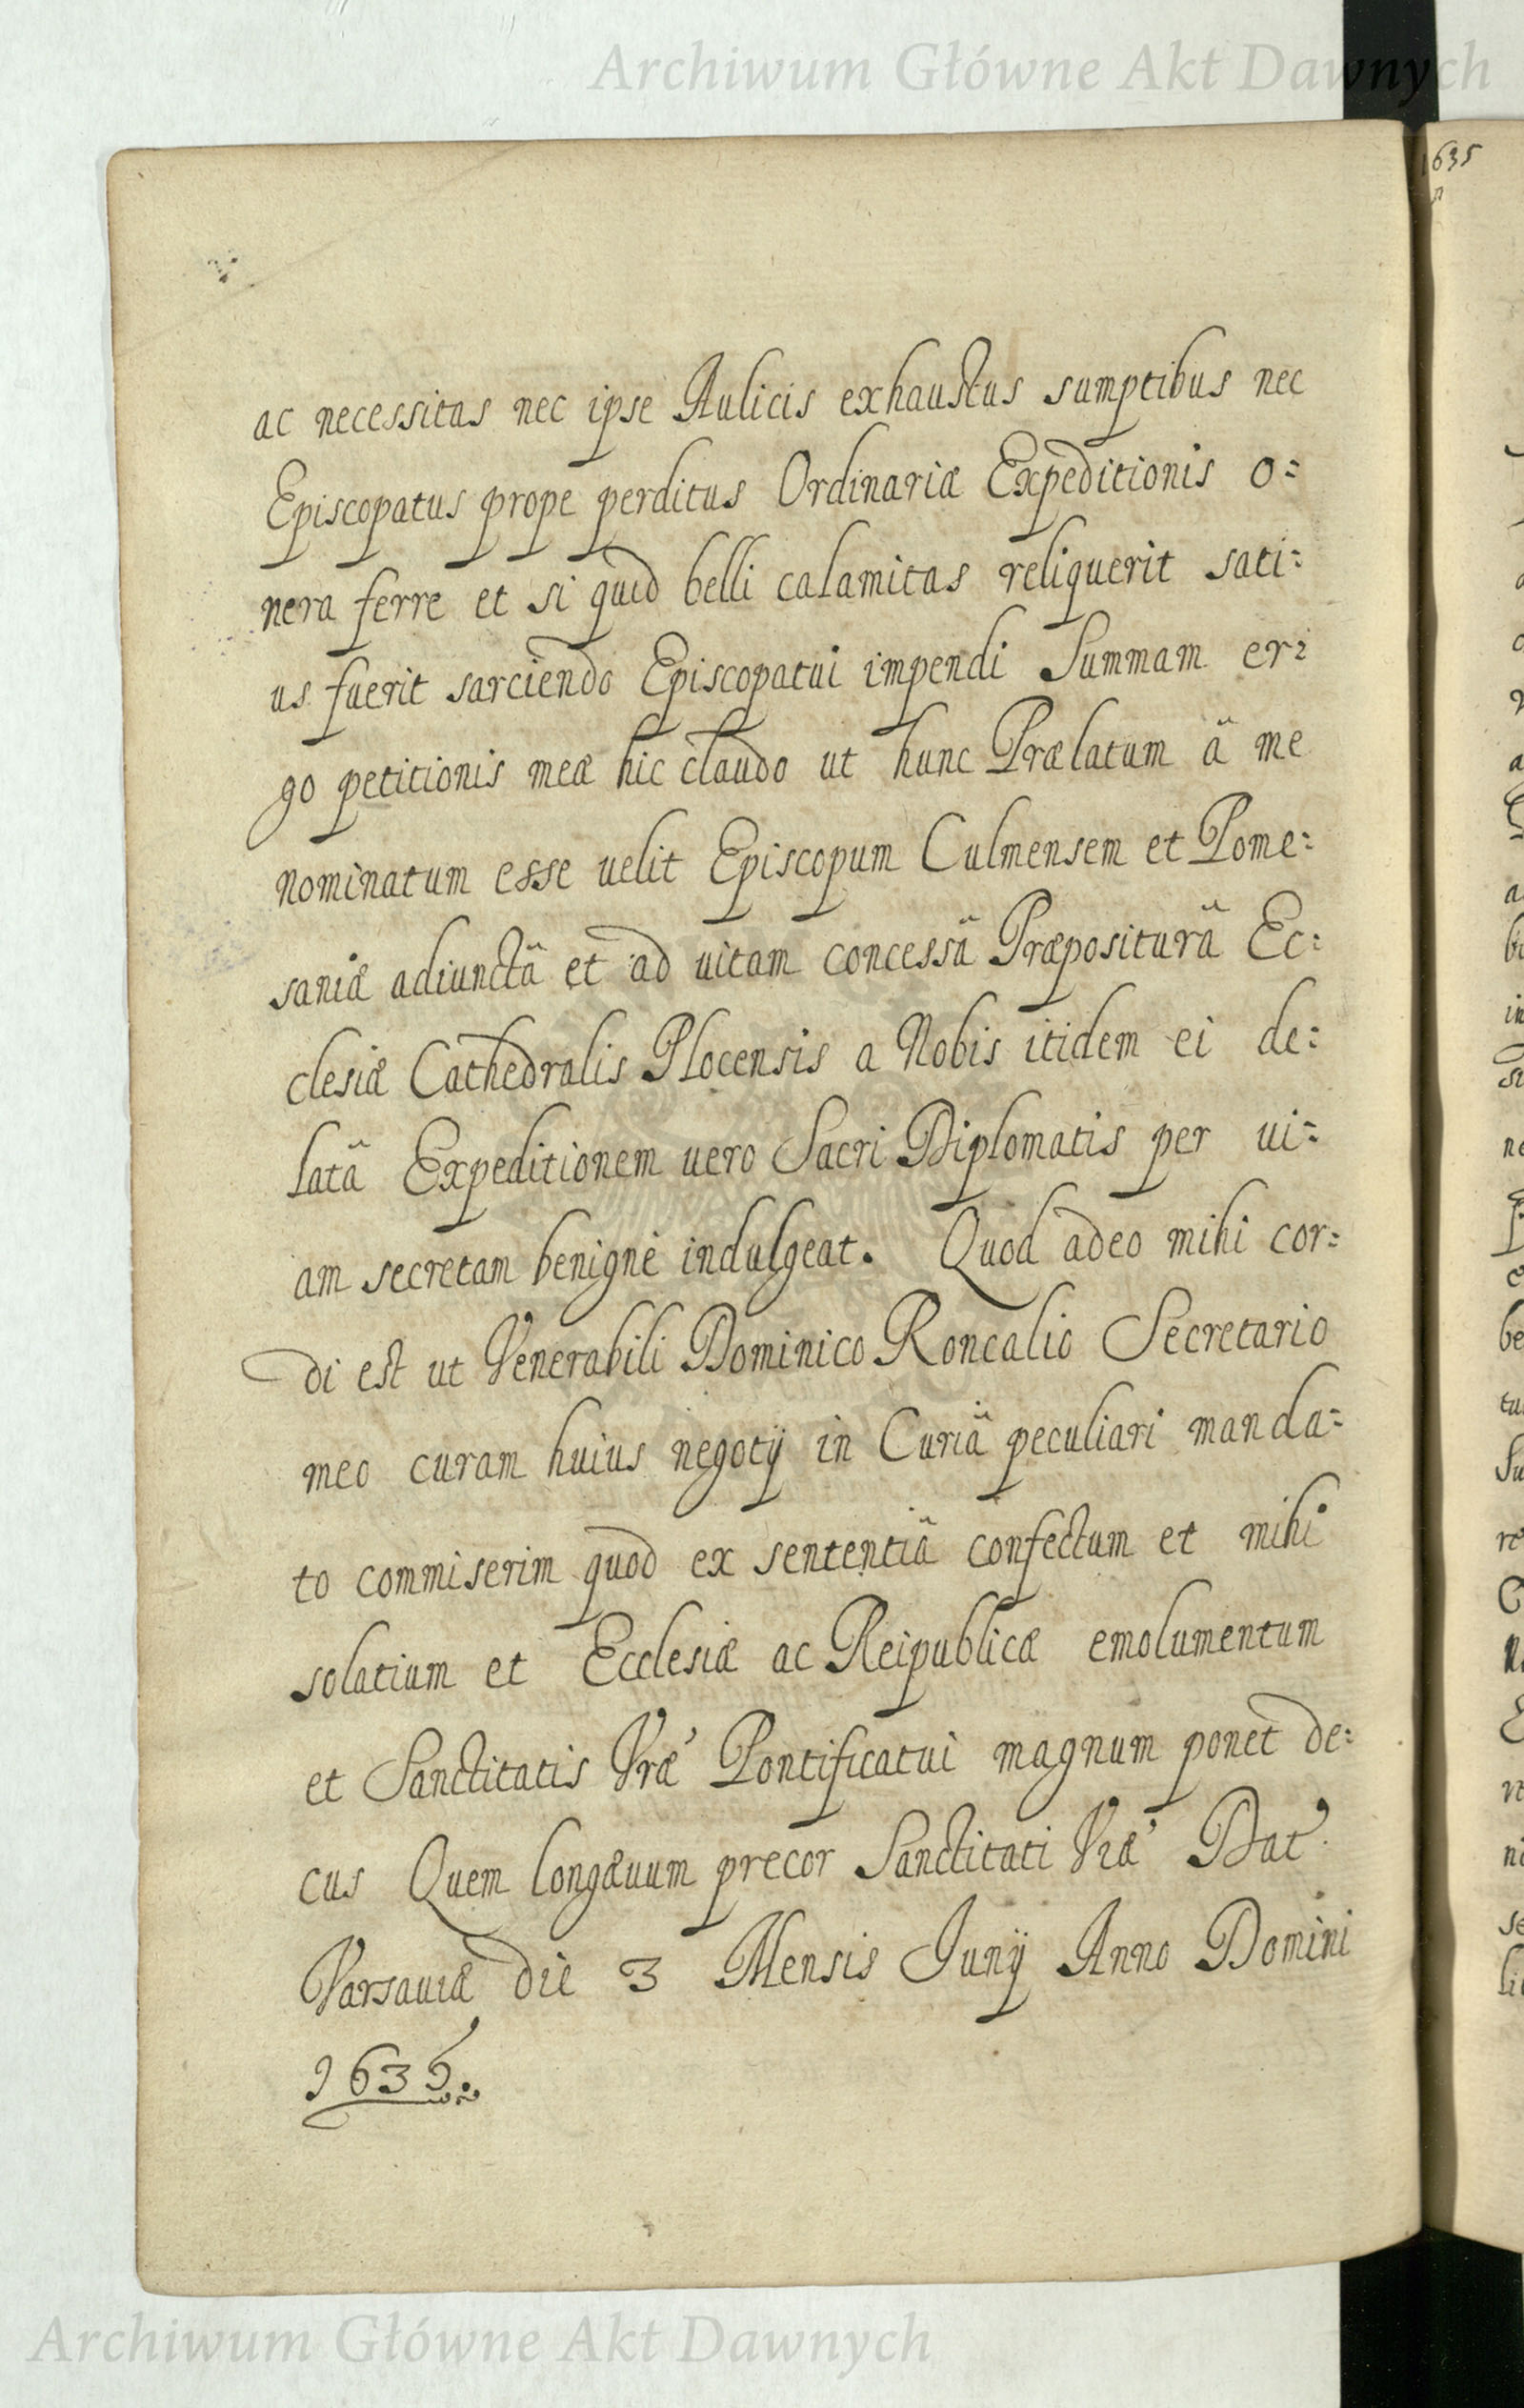 Archiwum Główne Akt Dawnych
1635
ac necessitas nec ipse Aulicis exhaustus sumptibus nec
Episcopatus prope perditus Ordinariæ Expeditionis o=
nera ferre et si quid belli calamitas reliquerit sati=
us fuerit sarciendo Episcopatui impendi Summam er=
go petitionis meæ hic claudo ut hunc Prælatum â me
nominatum esse uelit Episcopum Culmensem et Pome=
saniæ adiunctâ et ad uitam concessâ Præpositurâ Ec=
clesiæ Cathedralis Plocensis a Nobis itidem ei de=
latâ Expeditionem uero Sacri Diplomatis per ui=
am secretam benigne indulgeat. Quod adeo mihi cor=
di est ut Venerabili Dominico Roncalio Secretario
meo curam huius negotij in Curiâ peculiari manda=
to commiserim quod ex sententiâ confectum et mihi
solatium et Ecclesiæ ac Reipublicæ emolumentum
et Sanctitatis Vræ Pontificatui magnum ponet de=
cus Quem longæuum precor Sanctitati Vræ Dat
Varsauiæ die 3 Mensis Junij Anno Domini
1635.
Archiwum Główne Akt Dawnych